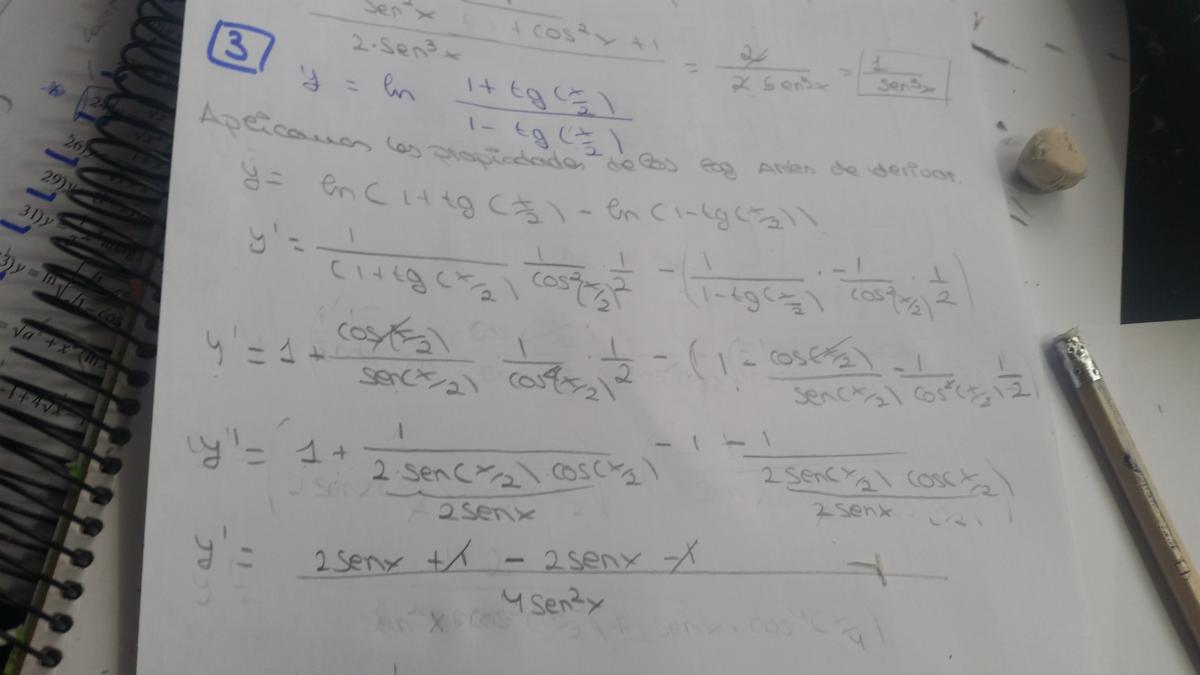 sen²x + cos²x + 1 / 2·sen³x = 2 / 2 sen³x = 1 / sen³x
3
y = ln (1 + tg(x/2)) / (1 - tg(x/2))
Aplicamos las propiedades de los log antes de derivar.
y = ln(1 + tg(x/2)) - ln(1 - tg(x/2))
y' = 1 / (1 + tg(x/2)) · 1 / cos²(x/2) · 1/2 - (1 / (1 - tg(x/2)) · -1 / cos²(x/2) · 1/2)
y' = 1 + cos(x/2) / sen(x/2) · 1 / cos²(x/2) · 1/2 - (1 - cos(x/2) / sen(x/2) · -1 / cos²(x/2) · 1/2)
y' = (1 + 1 / 2·sen(x/2) cos(x/2) - 1 - 1 / 2 sen(x/2) cos(x/2))
2senx 2senx
y' = 2senx + 1 - 2senx - 1 / 4sen²x
26)
29)y
31)y =
3)y = ln